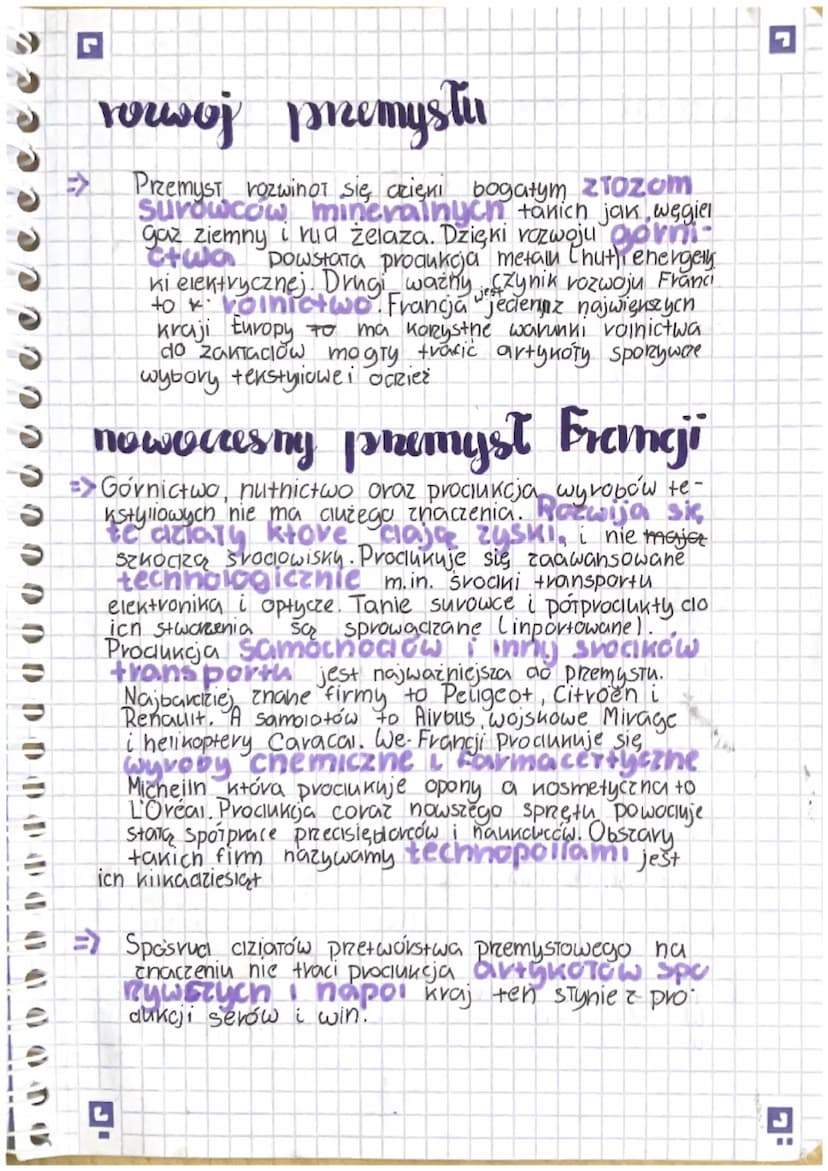 rozwój przemysłu
=> Przemysł rozwinął się dzięki bogatym złożom
surowców mineralnych takich jak węgiel
gaz ziemny i ruda żelaza. Dzięki rozwoju górni-
ctwa powstała produkcja metalu (hut) i energety
ki elektrycznej. Drugi ważny czynik rozwoju Franci
to rolnictwo. Francja jest jedenym z największych
kraji Europy to ma korzystne warunki rolnictwa
do zakładów mogły trafić artykoły spożywcze
wybory tekstyliowe i odzież
nowoczesny przemysł Francji
=> Górnictwo, hutnictwo oraz produkcja wyrobów te-
kstyliowych nie ma dużego znaczenia. Rozwija się
te działy które dają zyski, i nie mają
szkodzą środowisky. Produkuje się zaawansowane
technologicznie m.in. środki transportu
elektronika i optycze. Tanie surowce i półprodukty do
ich stworzenia są sprowadzane (inportowane).
Produkcja samochodów i inny środków
transportu jest najważniejsza do przemysłu.
Najbardziej znane firmy to Peugeot, Citroën i
Renault. A samolotów to Airbus, wojskowe Mirage
i helikoptery Caracal. We Francji Produkuje się
wyroby chemiczne i farmaceutyczne
Michelin która produkuje opony a kosmetyczna to
L'Oréal. Produkcja coraz nowszego sprzętu powoduje
stałą spółprace przedsiębiorców i naukowców. Obszary
takich firm nazywamy technopoliami jest
ich kilkadziesiąt
=> Spośrud działów przetwórstwa przemysłowego na
znaczeniu nie traci produkcja artykołów spo
żywszych i napoi kraj ten słynie z pro-
dukcji serów i win.